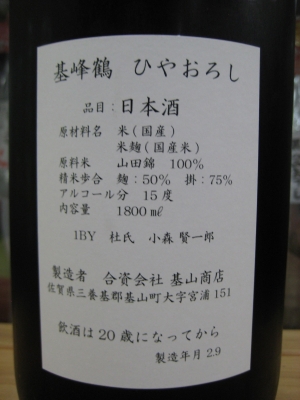 基峰鶴 ひやおろし
品目：日本酒
原材料名 米(国産)
米麹(国産米)
原料米 山田錦 100%
精米歩合 麹：50% 掛：75%
アルコール分 15度
内容量 1800㎖
1BY 杜氏 小森 賢一郎
製造者 合資会社 基山商店
佐賀県三養基郡基山町大字宮浦151
飲酒は20歳になってから
製造年月 2.9